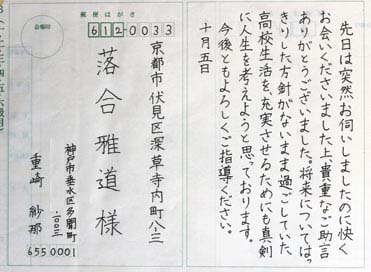 先日は突然お伺いしましたのに快く
お会いくださいました上、貴重なご助言
ありがとうございました。将来については、
きりした方針がないまま過ごしていた
高校生活を、充実させるためにも真剣
に人生を考えようと思っております。
今後ともよろしくご指導ください。
十月五日
郵便はがき
612-0033
京都市伏見区深草寺内町八三
落合雅道様
神戸市垂水区多聞町
重崎 紗那
6550001